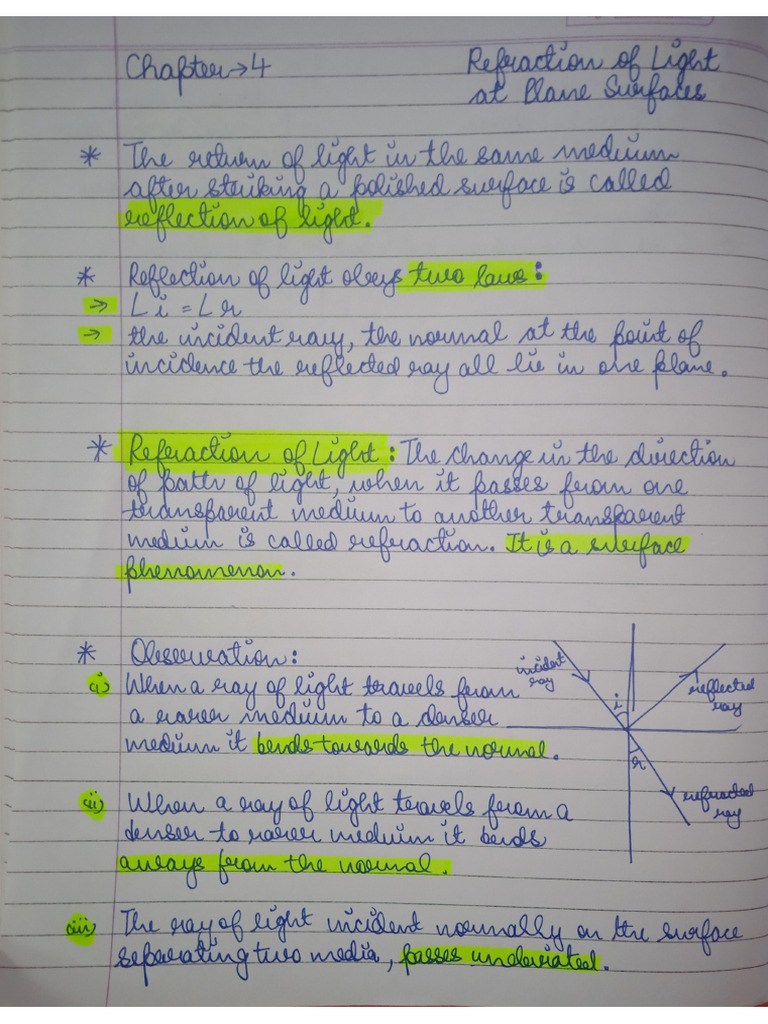 Chapter → 4
Refraction of Light
at Plane Surfaces
* The return of light in the same medium
after striking a polished surface is called
reflection of light.
* Reflection of light obeys two laws:
→ ∠i = ∠r
→ the incident ray, the normal at the point of
incidence the reflected ray all lie in one plane.
* Refraction of Light: The change in the direction
of path of light, when it passes from one
transparent medium to another transparent
medium is called refraction. It is a surface
phenomenon.
* Observation:
i) When a ray of light travels from
a rarer medium to a denser
medium it bends towards the normal.
incident
ray
i
reflected
ray
r
refracted
ray
ii) When a ray of light travels from a
denser to rarer medium it bends
aways from the normal.
iii) The ray of light incident normally on the surface
separating two media, passes undeviated.